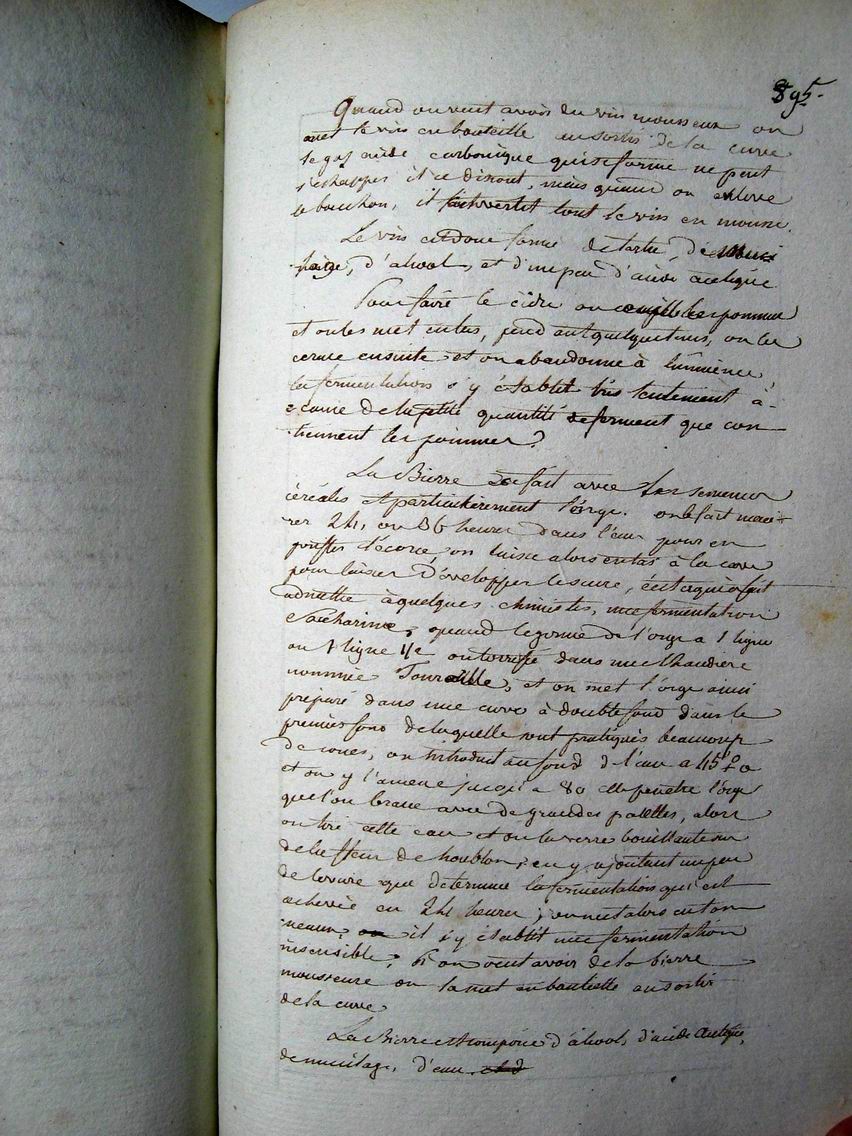 895.
Quand on veut avoir du vin mousseux on
met le vin en bouteille au sortir de la cuve
le gaz acide carbonique qui se forme ne peut
s'échapper il se dissout, mais quand on enlève
le bouchon, il convertit tout le vin en mousse.
Le vin est donc formé de tartre, de
d'alcool, et d'un peu d'acide acétique
Pour faire le cidre on cueille les pommes
et on les met en tas, pendant quelque tems, on les
ensuite et on abandonne à
la fermentation s'y établit très lentement à
cause de la petite quantité de ferment que con
tiennent les pommes.
La Bierre se fait avec les semences
céréales et particulièrement l'orge. on le fait macé
rer 24, ou 36 heures dans l'eau pour en
gonfler l'écorce, on laisse alors en tas à la cave
pour laisser développer le sucre, c'est ce qui a fait
admettre à quelques chimistes, une fermentation
Saccharine, quand le germe de l'orge a 1 ligne
ou 1 ligne 1/2 on torréfie dans une Chaudière
nommée Touraille, et on met l'orge ainsi
préparé dans une cuve à double fond dans le
premier fond de laquelle sont pratiqués beaucoup
de trous, on introduit au fond de l'eau a 45°
et on y l'amène jusqu'a 80 elle pénètre l'orge
que l'on brasse avec de grandes palettes, alors
on tire cette eau et on la verse bouillante sur
de la fleur de houblon, en y ajoutant un peu
de levure qui détermine la fermentation qui est
achevée en 24 heures, on met alors en ton
neaux, il s'y établit une fermentation
insensible, si on veut avoir de la bierre
mousseuse on la met en bouteille au sortir
de la cuve
La Bierre est composée d'alcool, d'acide acétique,
de mucilage, d'eau.